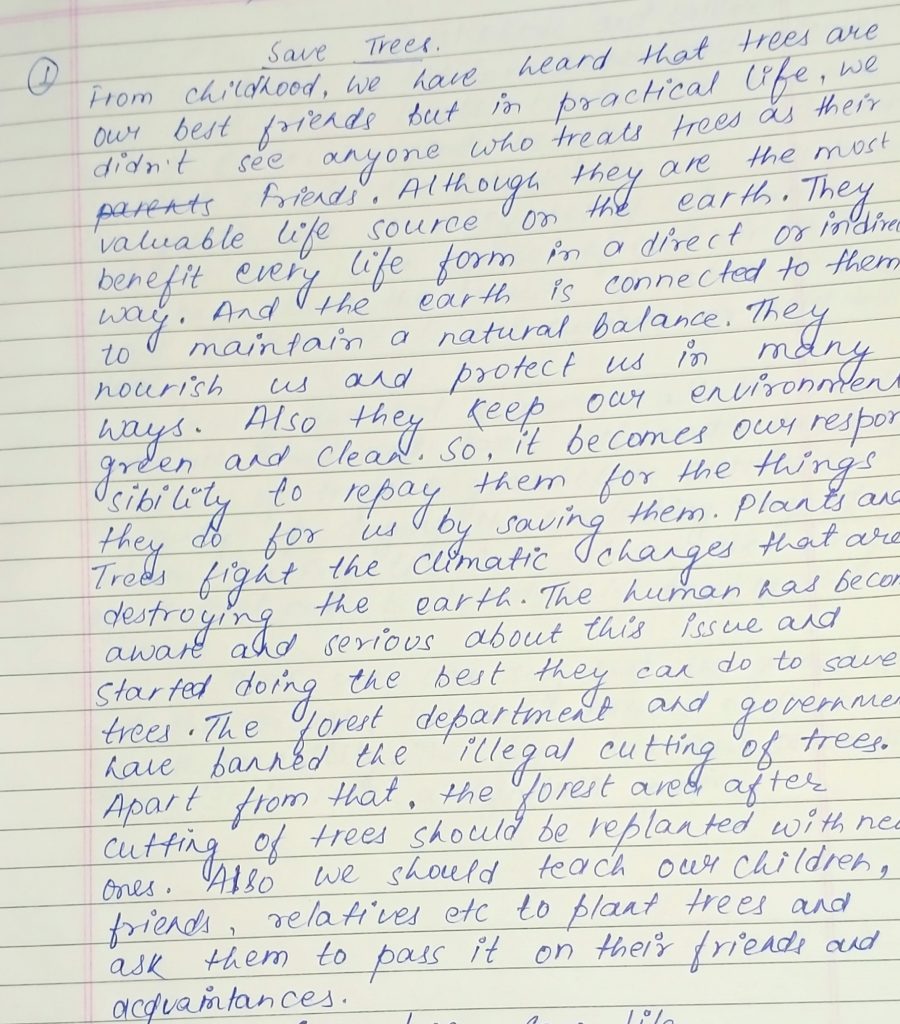 Save Trees.
① From childhood, we have heard that trees are
our best friends but in practical life, we
didn't see anyone who treats trees as their
parents friends. Although they are the most
valuable life source on the earth. They
benefit every life form in a direct or indirec
way. And the earth is connected to them
to maintain a natural balance. They
nourish us and protect us in many
ways. Also they keep our environmen
green and clean. So, it becomes our respon
sibility to repay them for the things
they do for us by saving them. Plants and
Trees fight the climatic changes that are
destroying the earth. The human has becom
aware and serious about this issue and
started doing the best they can do to save
trees. The forest department and governmen
have banned the illegal cutting of trees.
Apart from that, the forest area after
cutting of trees should be replanted with new
ones. Also we should teach our children,
friends, relatives etc to plant trees and
ask them to pass it on their friends and
acquaintances.
life